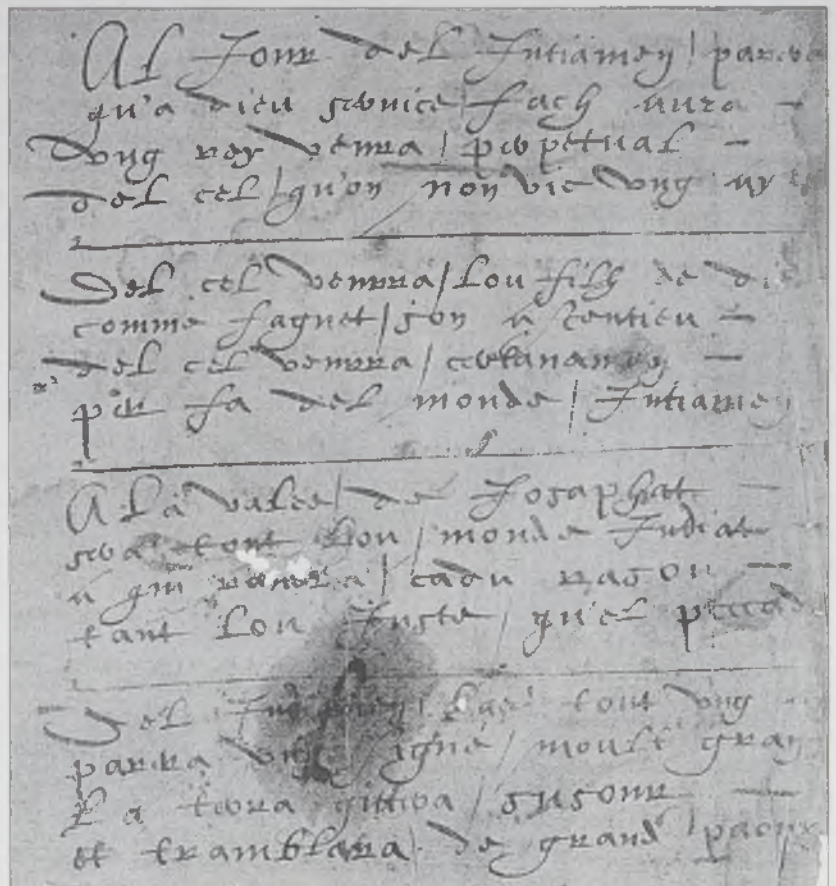 Al Jour del Jutiamen / parra
qu'a dieu service / fach aura –
Vng rey venra / perpetual –
del cel / qu'on non vic vng ay
Del cel venrra / Lou filh de di
comme
del cel venrra / certanamen –
per fa del monde / Jutiamen
A La valee / de Josaphat –
sera tout Lou / monde Judiat
a qui randra / cadu rason –
tant Lou Juste / qu'el peccad
Del tout vng
parra vng signe / moult gran
La terra gittera / susour –
et tramblara / de grand paour